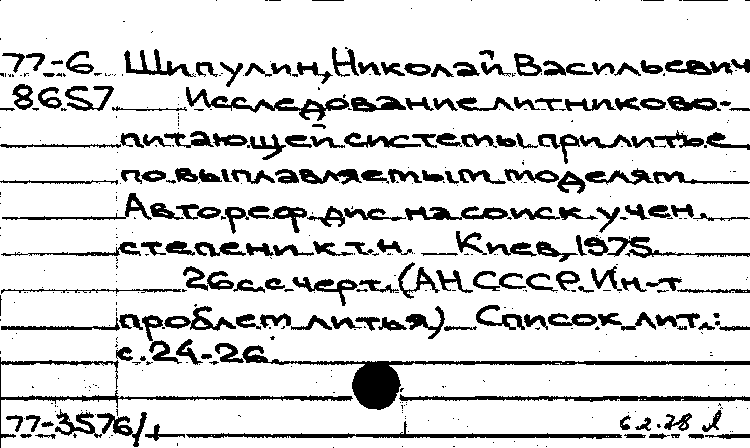 77-6 Шипулин, Николай Васильевич
8657 Исследование литниково-
питающей системы при литье
по выплавляемым моделям.
Автореф. дис. на соиск. учен.
степени к.т.н. Киев, 1975.
26 с. с черт. (АН СССР. Ин-т
проблем литья) Список лит.:
с. 24-26.
77-3576/1 6.2.78